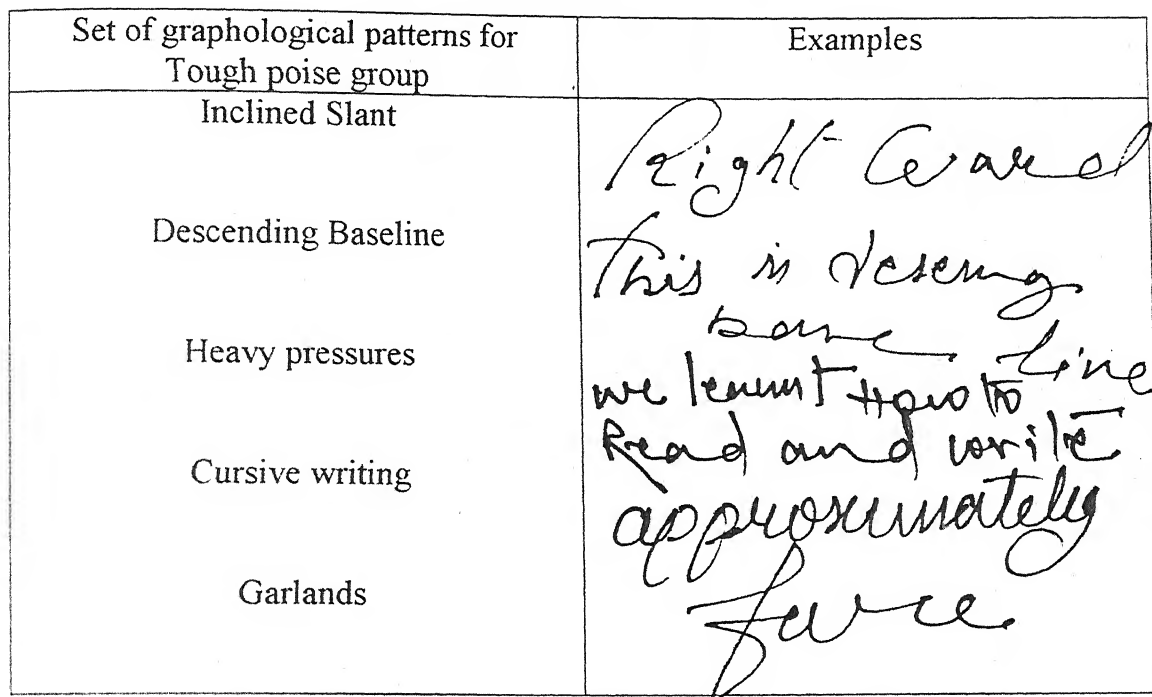 Set of graphological patterns for Examples
Tough poise group
Inclined Slant
Right Ward
Descending Baseline
This is desening
base line
Heavy pressures
we learnt How to
Read and write
Cursive writing
approxumately
Garlands
farce